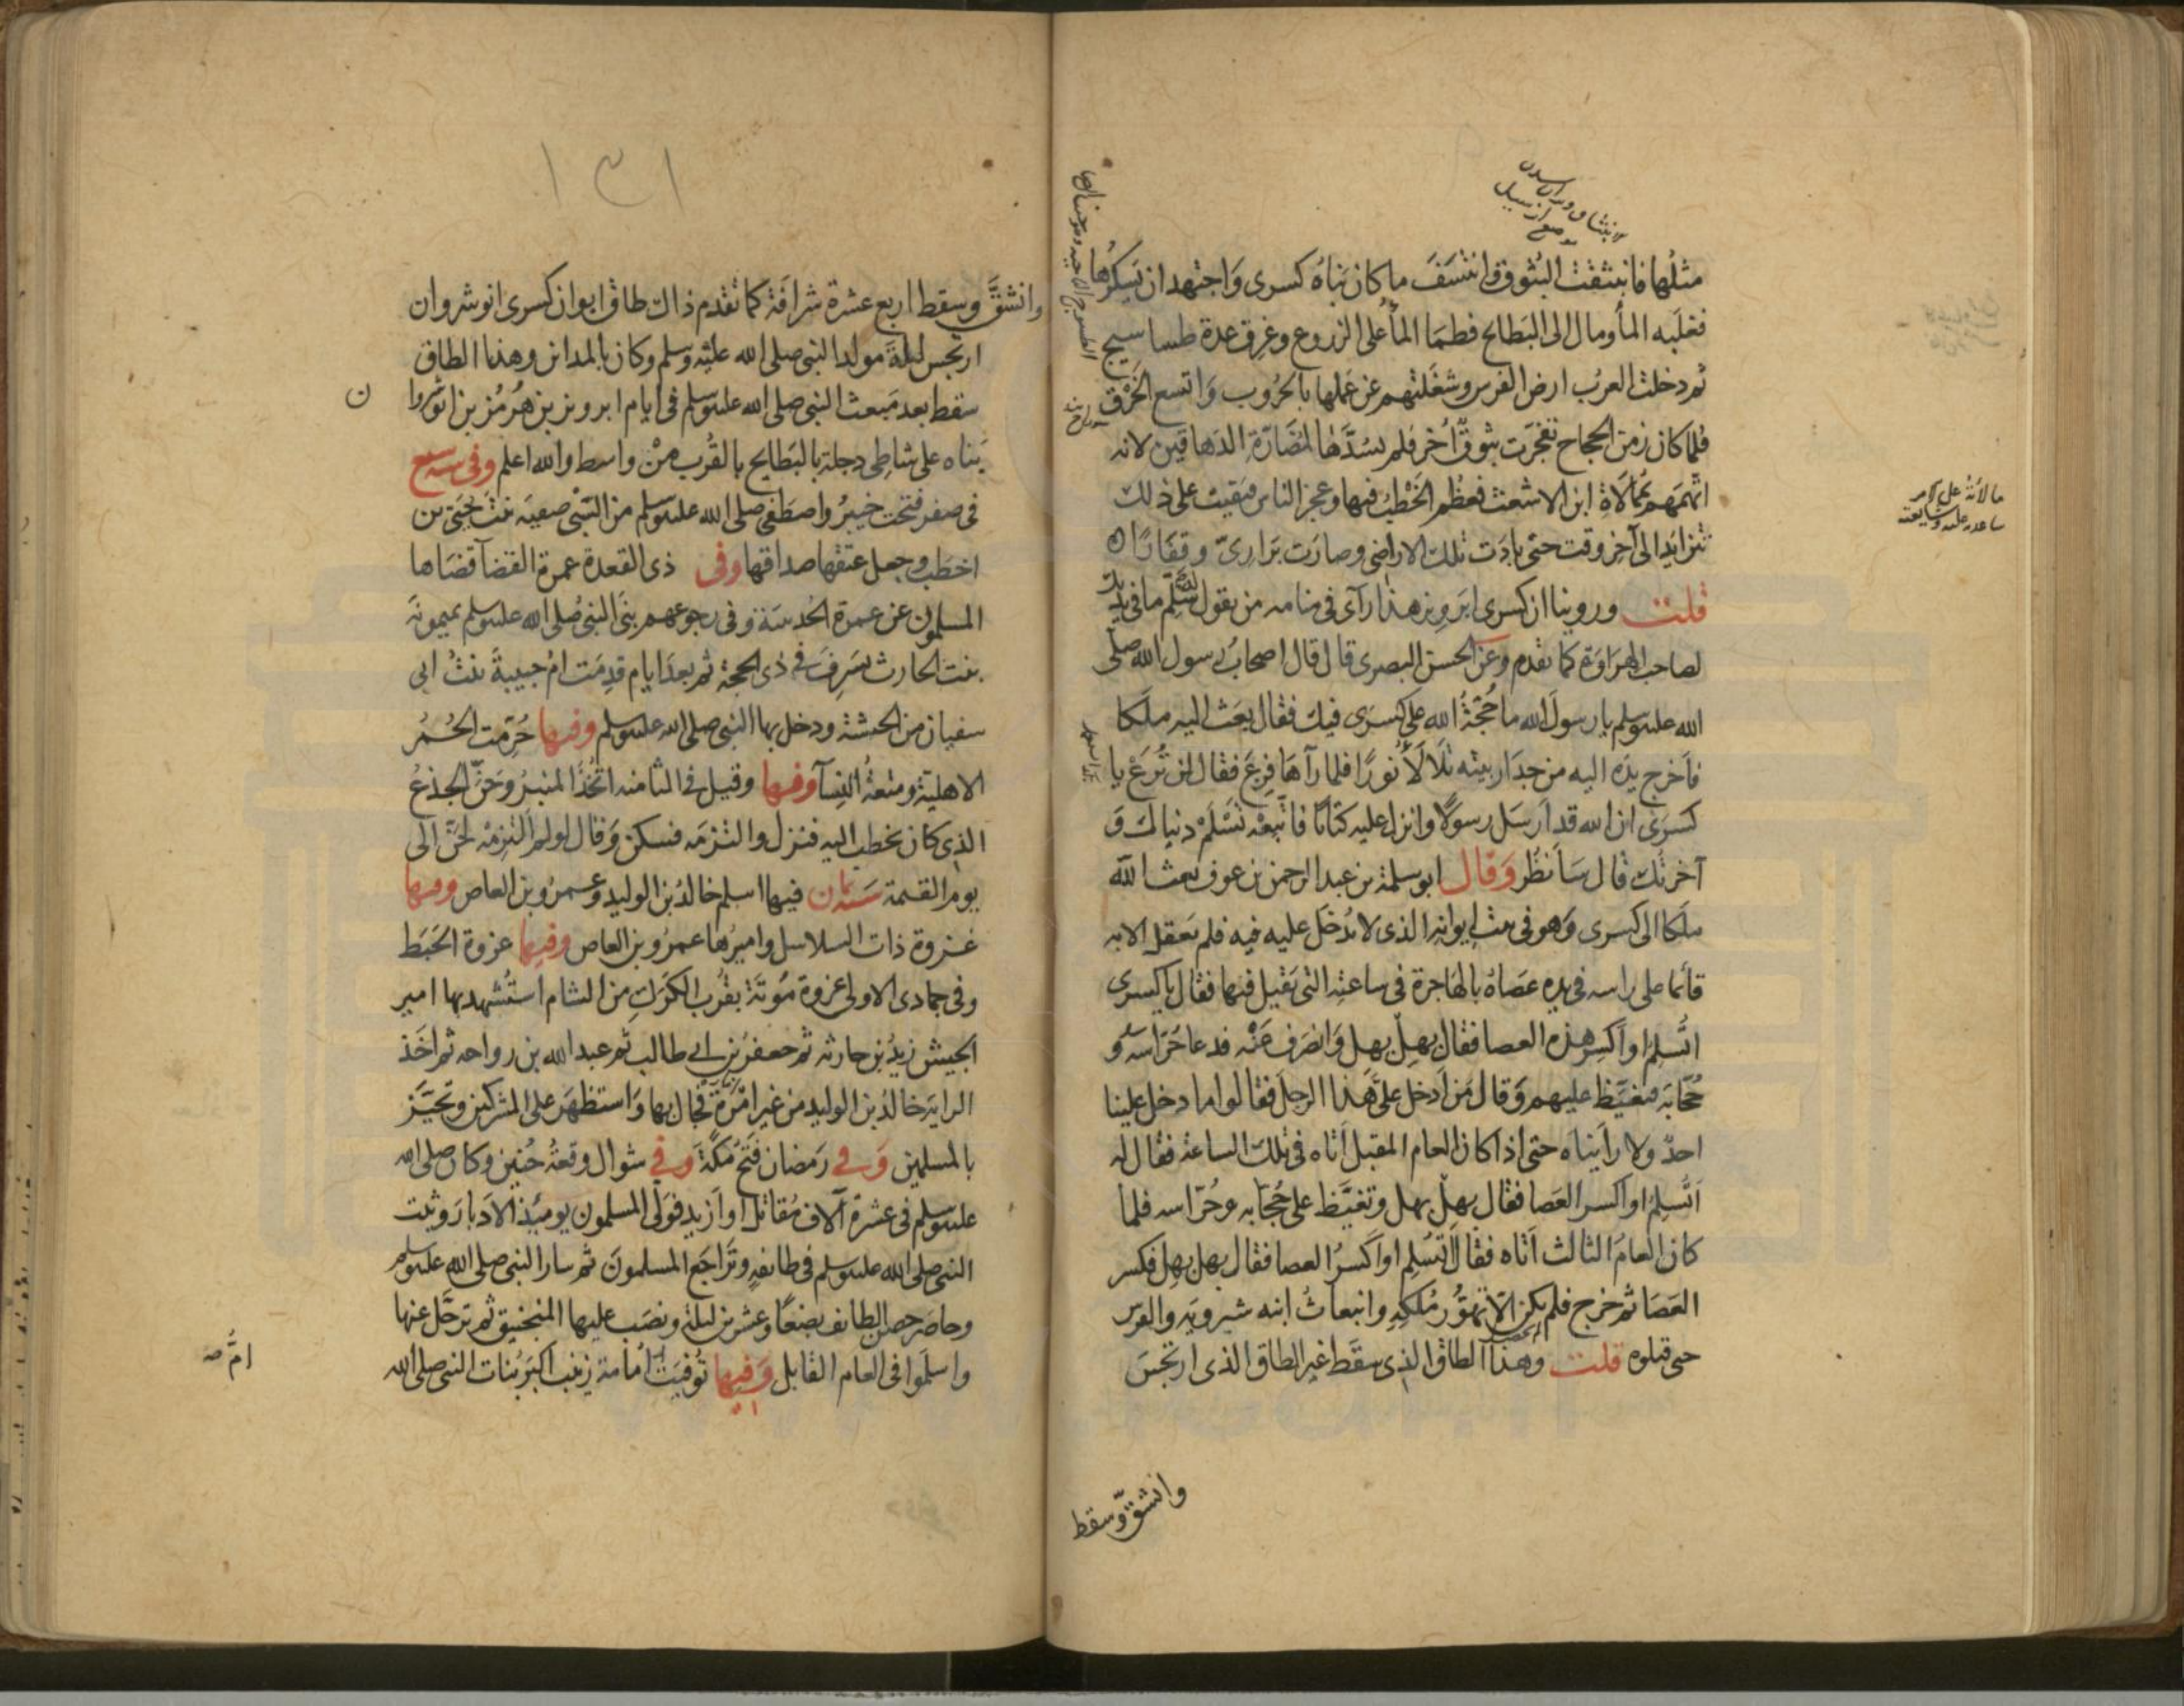 مثلها فانبثقت البثوق وانتسف ما كان بناه كسرى واجتهد ان يسكرها
فغلبه المأ ومال الى البطايح فطما المأ على الزروع وغرق عدة طساسيج
ثم دخلت العرب ارض الفرس وشغلتهم عن عملها بالحروب واتسع الخرق
فلما كان زمن الحجاج تفجرت بثوق اخر فلم يسدها لمضارة الدهاقين لانه
اتهمهم بممالاة ابن الاشعث فعظم الخطب فيها وعجز الناس فبقيت على ذلك
تتزايد الى آخر وقت حتى بادت تلك الاراضى وصارت برارى وقفارا
قلت وروينا ان كسرى ابرويز هذا رآى فى منامه من يقول له سلم ما فى يدك
لصاحب الهراوة كما تقدم وعن الحسن البصرى قال قال اصحاب رسول الله صلى
الله عليه وسلم يا رسول الله ما حجة الله على كسرى فيك فقال بعث اليه ملكا
فأخرج يده اليه من جدار بيته تلألأ نورا فلما رآها فزع فقال لن ترع يا
كسرى ان الله قد ارسل رسولا وانزل عليه كتابا فاتبعه تسلم دنياك و
آخرتك قال سأنظر وقال ابو سلمة بن عبد الرحمن بن عوف بعث الله
ملكا الى كسرى وهو فى بيت ايوانه الذى لا يدخل عليه فيه فلم يعقل الا به
قائما على راسه فى يده عصاه بالهاجرة فى ساعته التى يقيل فيها فقال يا كسرى
اتسلم او اكسر هذه العصا فقال بهل بهل وانصرف عنه فدعا حراسه و
حجابه فتغيظ عليهم وقال من ادخل على هذا الرجل فقالوا ما دخل علينا
احد ولا رايناه حتى اذا كان العام المقبل اتاه فى تلك الساعة فقال له
اتسلم او اكسر العصا فقال بهل بهل وتغيظ على حجابه وحراسه فلما
كان العام الثالث اتاه فقال اتسلم او اكسر العصا فقال بهل بهل فكسر
العصا ثم خرج فلم يكن الا تهور ملكه وانبعاث ابنه شيرويه والفرس
حتى قتلوه قلت وهذا الطاق الذى سقط غير الطاق الذى ارتجس
وانشق وسقط
وانشق وسقط اربع عشرة شرافة كما تقدم ذاك طاق ايوان كسرى انوشروان
ارتجس ليلة مولد النبى صلى الله عليه وسلم وكان بالمداين وهذا الطاق
سقط بعد مبعث النبى صلى الله عليه وسلم فى ايام ابرويز بن هرمز بن انوشروا
ن
بناه على شاطى دجلة بالبطايح بالقرب من واسط والله اعلم وفى سنه سبع
فى صفر فتحت خيبر واصطفى صلى الله عليه وسلم من السبى صفيه بنت حيى بن
اخطب وجعل عتقها صداقها وفى ذى القعدة عمرة القضآ قضاها
المسلمون عن عمرة الحديبية وفى رجوعهم بنى النبى صلى الله عليه وسلم بميمونة
بنت الحارث بسرف فى ذى الحجة ثم بعد ايام قدمت ام حبيبة بنت ابى
سفيان من الحبشة ودخل بها النبى صلى الله عليه وسلم وفيها حرمت الحمر
الاهلية ومتعة النسآ وفيها وقيل فى الثامنه اتخذ المنبر وحن الجذع
الذى كان يخطب اليه فنزل والتزمه فسكن وقال لو لم التزمه لحن الى
يوم القيمة سنه ثمان فيها اسلم خالد بن الوليد وعمرو بن العاص وفيها
غزوة ذات السلاسل واميرها عمرو بن العاص وفيها غزوة الخبط
وفى جمادى الاولى غزوة موتة بقرب الكرك من الشام استشهد بها امير
الجيش زيد بن حارثه ثم جعفر بن ابى طالب ثم عبد الله بن رواحه ثم اخذ
الراية خالد بن الوليد من غير امرة فجال بها واستظهر على المشركين وتحيز
بالمسلمين وفى رمضان فتح مكة وفى شوال وقعة حنين وكان صلى الله
عليه وسلم فى عشرة آلاف مقاتل او ازيد فولى المسلمون يوميذ الادبار وثبت
النبى صلى الله عليه وسلم فى طايفة وتراجع المسلمون ثم سار النبى صلى الله عليه وسلم
وحاصر حصن الطايف بضعا وعشرين ليلة ونصب عليها المنجنيق ثم ترحل عنها
واسلموا فى العام القابل وفيها توفيت امامة زينب اكبر بنات النبى صلى الله
ام صح
١٣١